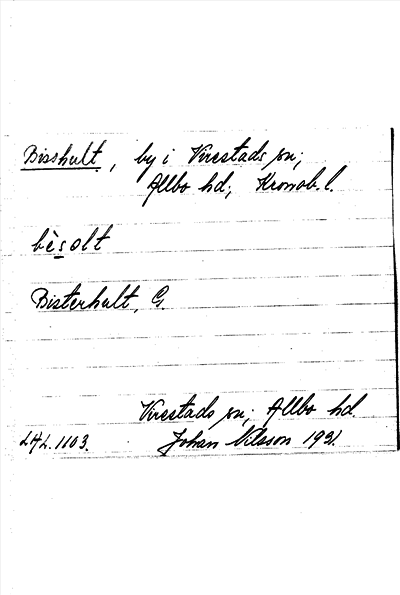 Bisshult, by i Virestads sn;
Allbo hd; Kronob. l.
bèsolt
Bisterhult, G.
Virestads sn; Allbo hd.
LAL. 1103. Johan Nilsson 1931.